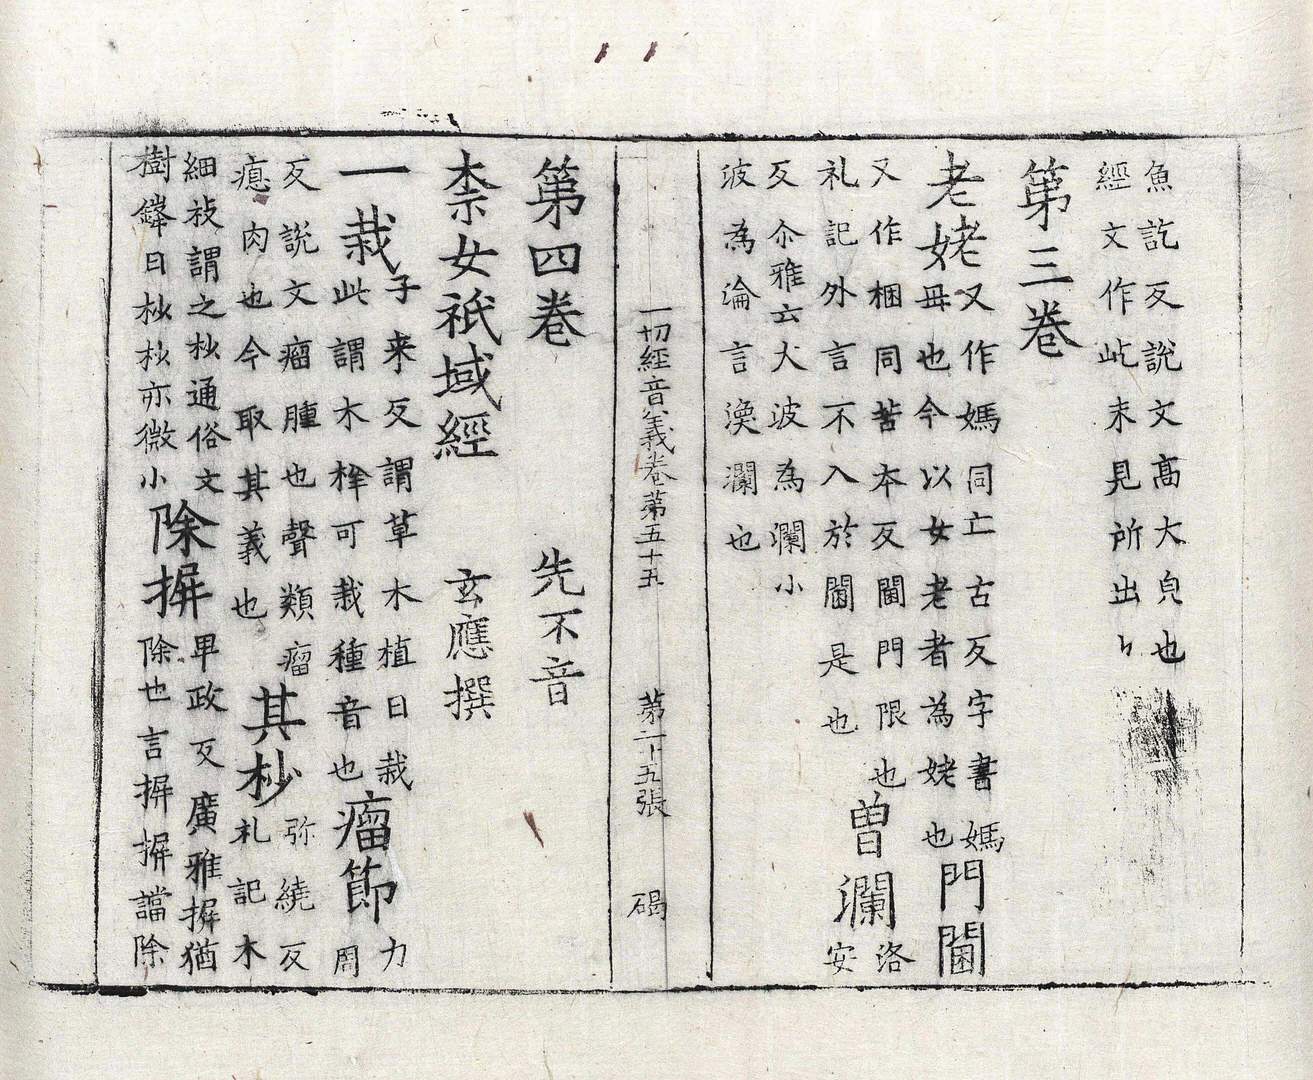 魚訖反說文高大皃也
經文作屹未見所出〻
第三卷
老姥又作媽同亡古反字書媽
母也今以女老者為姥也門閫
又作梱同苦本反閫門限也
礼記外言不入於閫是也曽瀾洛
安
反尒雅云大波為瀾小
波為淪言渙瀾也
一切經音義卷第五十五 第二十五張 碣
第四卷 先不音
柰女祇域經 玄應撰
一栽子来反謂草木植曰栽
此謂木椊可栽種音也瘤節力
周
反說文瘤腫也聲類瘤
瘜肉也今取其義也其杪弥繞反
札記木
細枝謂之杪通俗文
樹鋒曰杪杪亦微小除摒卑政反廣雅摒猶
除也言摒摒譡除